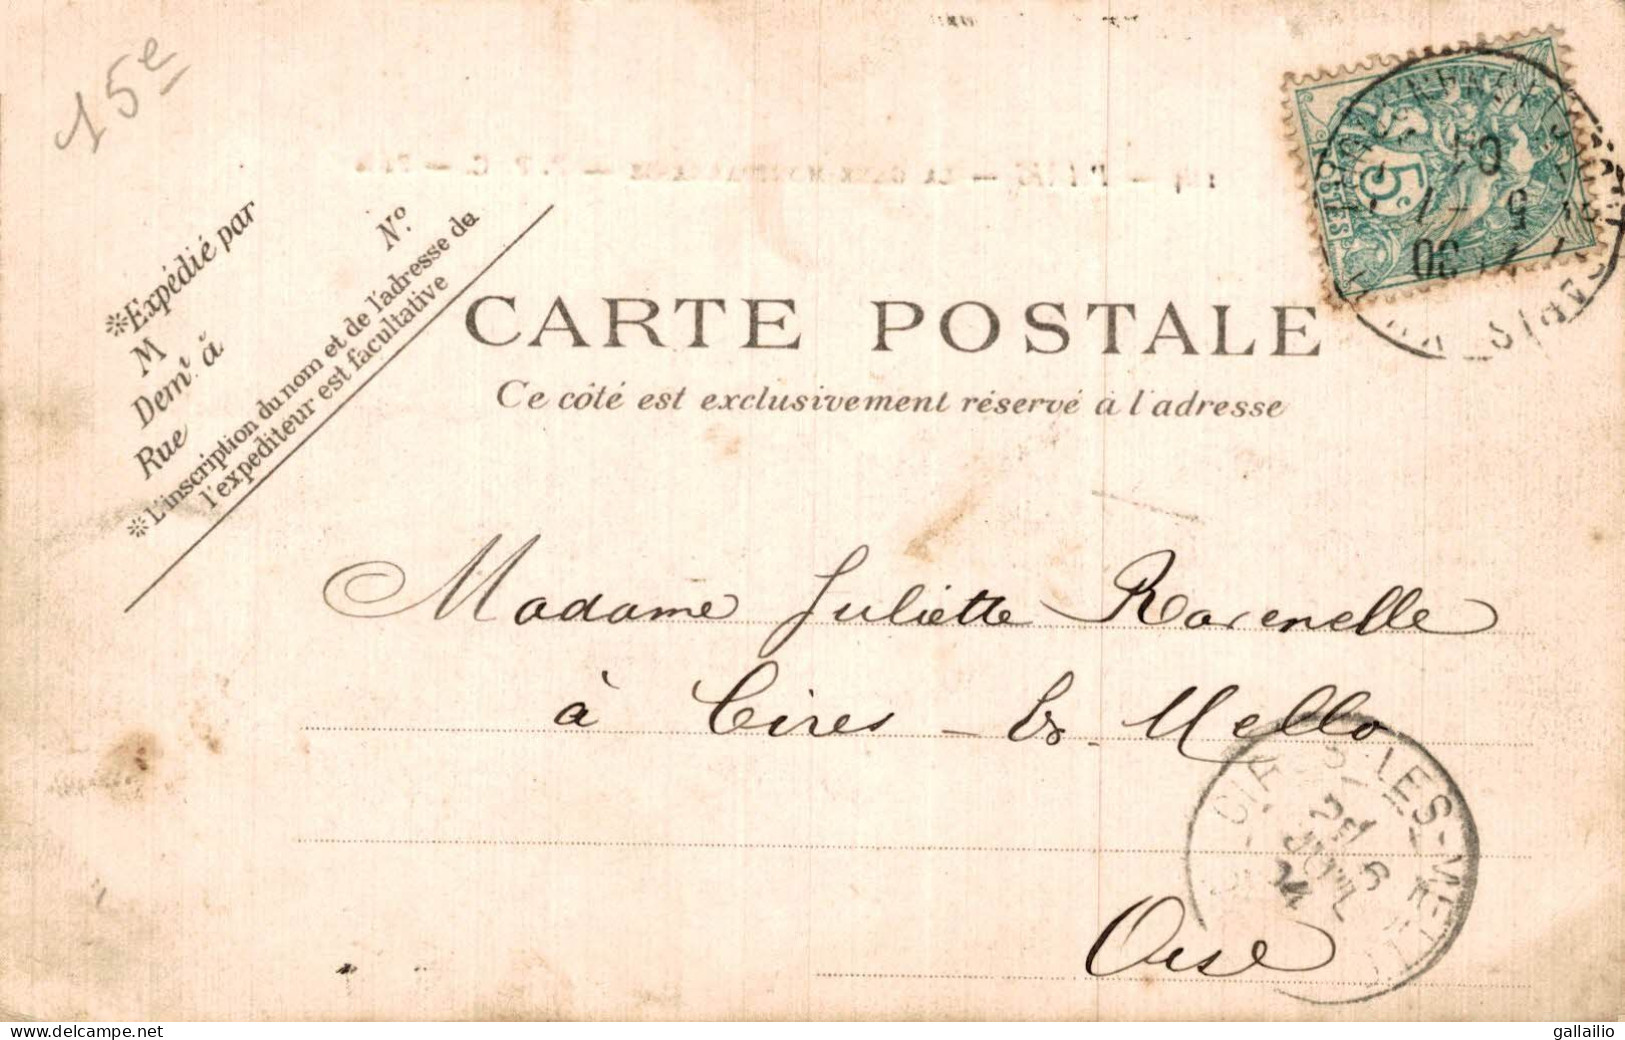 15e
❊Expédié par
M
Demt à
Rue
No
❊L'inscription du nom et de l'adresse de
l'expéditeur est facultative
CARTE POSTALE
Ce côté est exclusivement réservé à l'adresse
5
Madame Juliette Ravenelle
à Cires-les-Mello
Oise
CIRES-LES-MELLO
gallailio